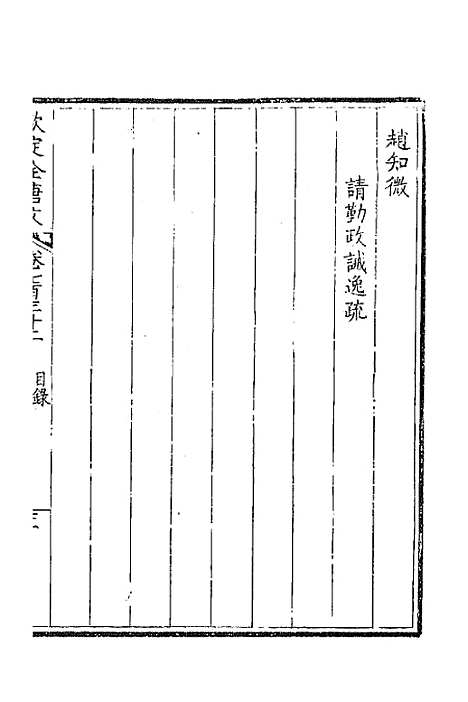 趙知微
請勤政誡逸疏
欽定全唐文
卷七百三十二
目錄